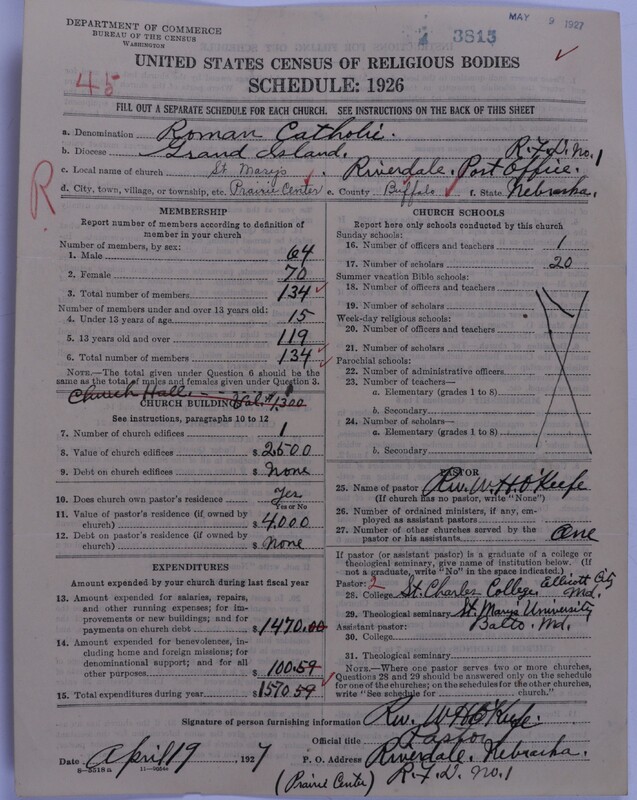 DEPARTMENT OF COMMERCE
BUREAU OF THE CENSUS
WASHINGTON
3815
MAY 9 1927
45
UNITED STATES CENSUS OF RELIGIOUS BODIES
SCHEDULE: 1926
FILL OUT A SEPARATE SCHEDULE FOR EACH CHURCH. SEE INSTRUCTIONS ON THE BACK OF THIS SHEET
a. Denomination Roman Catholic.
b. Diocese Grand Island. R.F.D. No. 1
c. Local name of church St Mary's Riverdale Post Office.
R
d. City, town, village, or township, etc. Prairie Center e. County Buffalo f. State Nebraska.
MEMBERSHIP
Report number of members according to definition of
member in your church
Number of members, by sex:
1. Male 64
2. Female 70
3. Total number of members 134
Number of members under and over 13 years old:
4. Under 13 years of age 15
5. 13 years old and over 119
6. Total number of members 134
NOTE.—The total given under Question 6 should be the
same as the total of males and females given under Question 3.
Church Hall — Val. $1300
CHURCH BUILDINGS
See instructions, paragraphs 10 to 12
7. Number of church edifices 1
8. Value of church edifices $ 2500
9. Debt on church edifices $ None
10. Does church own pastor's residence? Yes
Yes or No
11. Value of pastor's residence (if owned by
church) $ 4000
12. Debt on pastor's residence (if owned by
church) $ None
EXPENDITURES
Amount expended by your church during last fiscal year
13. Amount expended for salaries, repairs,
and other running expenses; for im-
provements or new buildings; and for
payments on church debt $ 1470.00
14. Amount expended for benevolences, in-
cluding home and foreign missions; for
denominational support; and for all
other purposes $ 100.59
15. Total expenditures during year $ 1570.59
CHURCH SCHOOLS
Report here only schools conducted by this church
Sunday schools:
16. Number of officers and teachers 1
17. Number of scholars 20
Summer vacation Bible schools:
18. Number of officers and teachers
19. Number of scholars
Week-day religious schools:
20. Number of officers and teachers
21. Number of scholars
Parochial schools:
22. Number of administrative officers
23. Number of teachers—
a. Elementary (grades 1 to 8)
b. Secondary
24. Number of scholars—
a. Elementary (grades 1 to 8)
b. Secondary
PASTOR
25. Name of pastor Rev. W. H. O'Keefe
(If church has no pastor, write "None")
26. Number of ordained ministers, if any, em-
ployed as assistant pastors
27. Number of other churches served by the
pastor or his assistants One
If pastor (or assistant pastor) is a graduate of a college or
theological seminary, give name of institution below. (If
not a graduate, write "No" in the space indicated.)
Pastor: 2
28. College St. Charles College, Ellicott City Md.
29. Theological seminary St. Mary's University
Assistant pastor: Balto. Md.
30. College
31. Theological seminary
NOTE.—Where one pastor serves two or more churches,
Questions 28 and 29 should be answered only on the schedule
for one of the churches; on the schedules for the other churches,
write "See schedule for church."
Signature of person furnishing information Rev. W H O'Keefe.
Official title Pastor
Date April 19, 1927 P. O. Address Riverdale, Nebraska.
8-5518a
(Prairie Center) R.F.D. No. 1